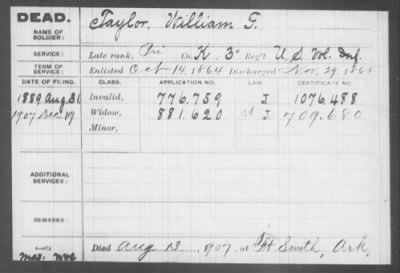 DEAD.
NAME OF SOLDIER:
Taylor, William G.
SERVICE:
Late rank, Pri Co. K, 3" Reg't U.S. Vol. Inf.
TERM OF SERVICE:
Enlisted Oct 14, 1864 Discharged Nov. 29, 1865
DATE OF FILING. CLASS. APPLICATION NO. LAW. CERTIFICATE NO.
1889 Aug 31 Invalid, 776.759 I 1076.488
1907 Dec 19 Widow, 881.620 I 709.680
Minor,
ADDITIONAL SERVICES:
REMARKS:
Died Aug 13, 1907, at Ft Smith, Ark,